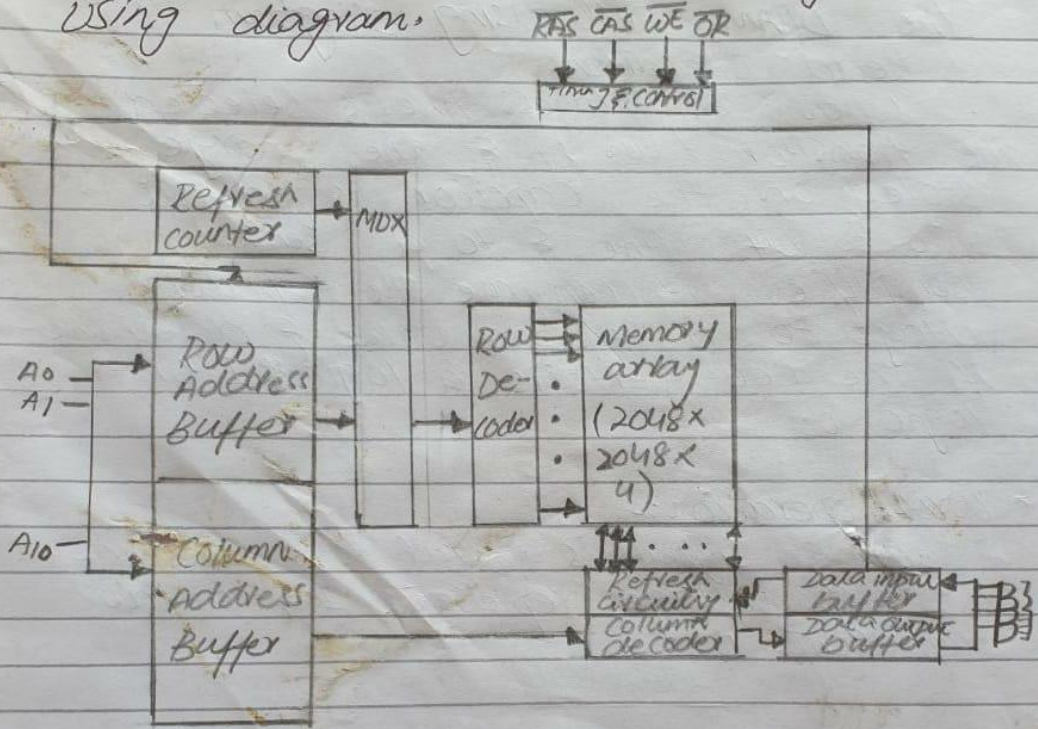 Using diagram.
RAS CAS WE OR
Timing & Control
Refresh
counter
MUX
Row
Address
Buffer
A0
A1
A10
Column
Address
Buffer
Row
De-
coder
Memory
array
(2048x
2048x
4)
Refresh
circuitry
column
decoder
Data input
buffer
Data output
buffer